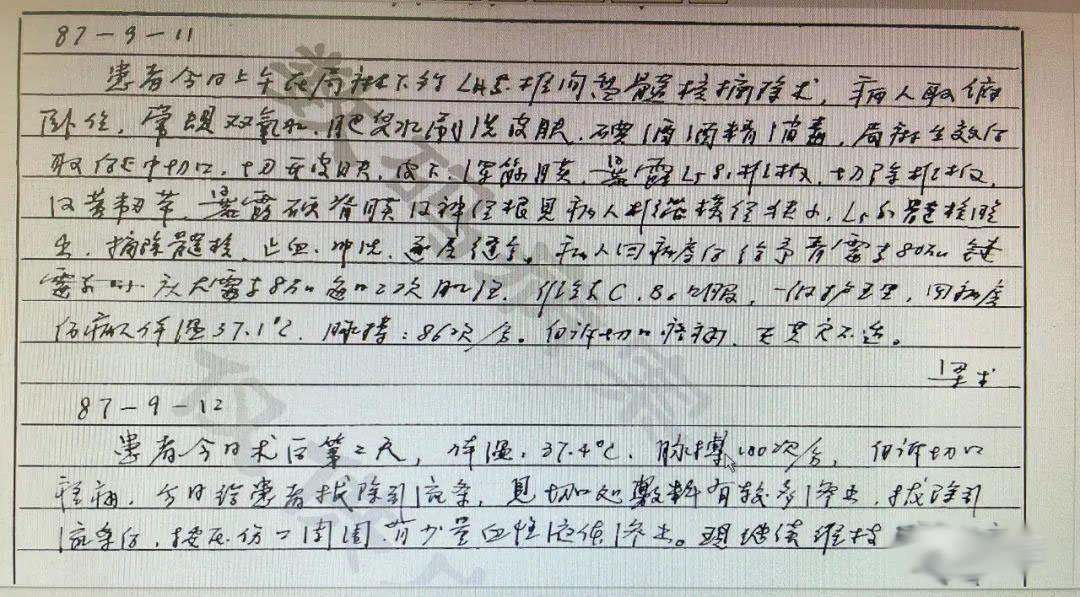 87-9-11
患者今日上午在局麻下行L4.5椎间盘髓核摘除术，病人取俯
卧位，常规双氧水、肥皂水刷洗皮肤，碘酒酒精消毒，局麻生效后
取后正中切口，切开皮肤，皮下，深筋膜，暴露L5S1椎板，切除椎板，
及黄韧带，暴露硬脊膜及神经根见病人椎管狭小，髓核脱
出，摘除髓核，止血、冲洗，逐层缝合。病人回病房后给予青霉素80万u
庆大霉素8万u每日二次肌注，维生素C、B6口服，一级护理，回病房
后病人体温37.1℃，脉搏：86次/分。自诉切口疼痛，无其它不适。
87-9-12
患者今日术后第二天，体温：37.4℃、脉搏100次/分，自诉切口
疼痛，今日给患者拔除引流条，见切口处敷料有较多渗出，拔除引
流条后，按压伤口周围有少量血性液体渗出。现继续维持